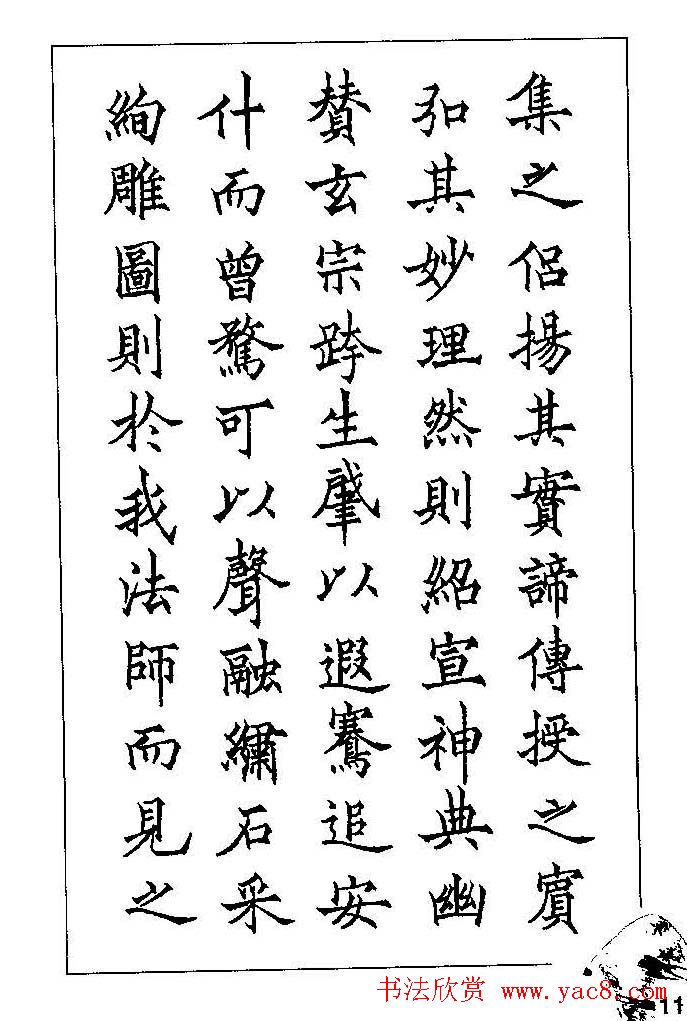 集之侣揚其實諦傳授之賓
弘其妙理然則紹宣神典幽
賛玄宗跨生肇以遐騫追安
什而曾騖可以聲融繡石采
絢雕圖則於我法師而見之
书法欣赏 www.yac8.com
11